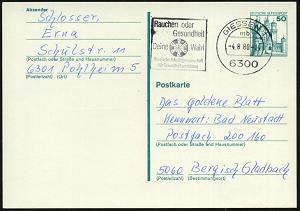 Absender
Schlosser,
Erna
Schulstr. 11
(Postfach oder Straße und Hausnummer)
6301 Pohlheim 5
(Postleitzahl) (Ort)
Rauchen oder
Gesundheit
Deine Wahl
GIESSEN
mb
-4.8.80
6300
DEUTSCHE BUNDESPOST
50
Postkarte
Das Goldene Blatt
Kennwort: Bad Neustadt
Postfach 200 160
(Postfach oder Straße und Hausnummer)
5060 Bergisch Gladbach
(Postleitzahl) (Bestimmungsort)